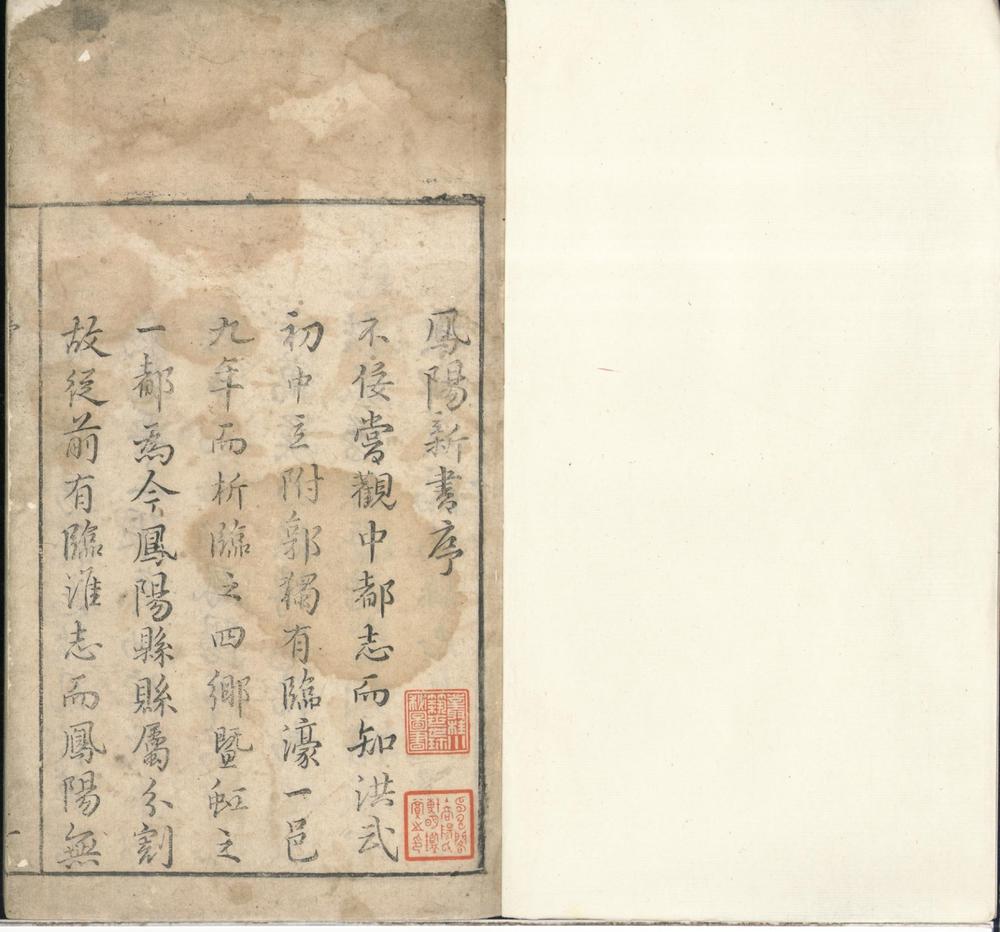 鳳陽新書序
不佞嘗觀中都志而知洪武
初中立附郭獨有臨濠一邑
九年而析臨之四鄉暨虹之
一都爲今鳳陽縣縣屬分割
故從前有臨淮志而鳳陽無